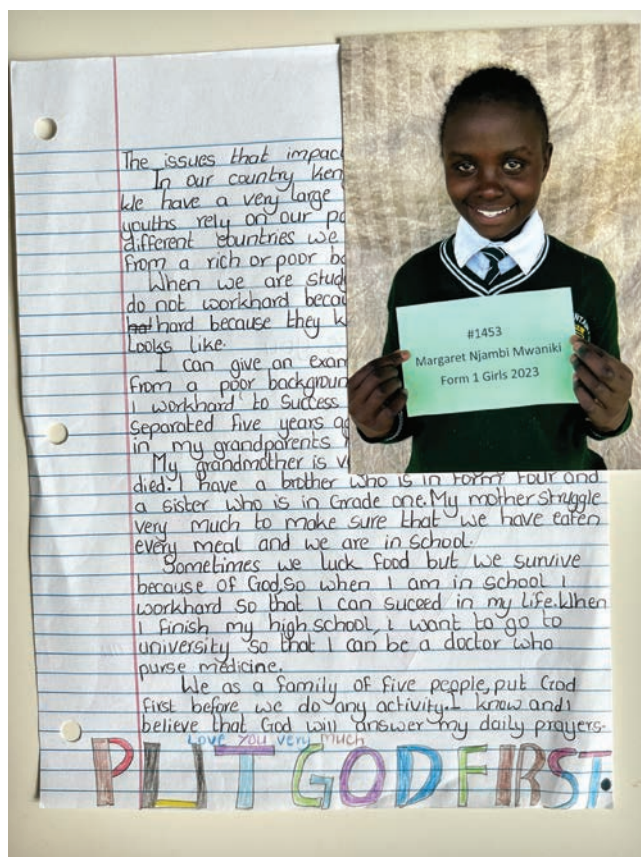 The issues that impac
In our country Ken
We have a very large
youths rely on our pa
different countries we
from a rich or poor ba
When we are stud
do not workhard becau
hard because they k
Looks like.
I can give an exam
from a poor background
I workhard to success
separated five years ag
in my grandparents
My grandmother is v
died. I have a brother who is in form four and
a sister who is in Grade one. My mother struggle
very much to make sure that we have eaten
every meal and we are in school.
Sometimes we luck food but we survive
because of God, So when I am in school I
workhard so that I can suceed in my life. When
I finish my high school, i want to go to
university so that I can be a doctor who
purse medicine.
We as a family of five people, put God
first before, we do any activity. I know and i
believe that God will answer my daily prayers.
Love You very much
PUT GOD FIRST.
#1453
Margaret Njambi Mwaniki
Form 1 Girls 2023